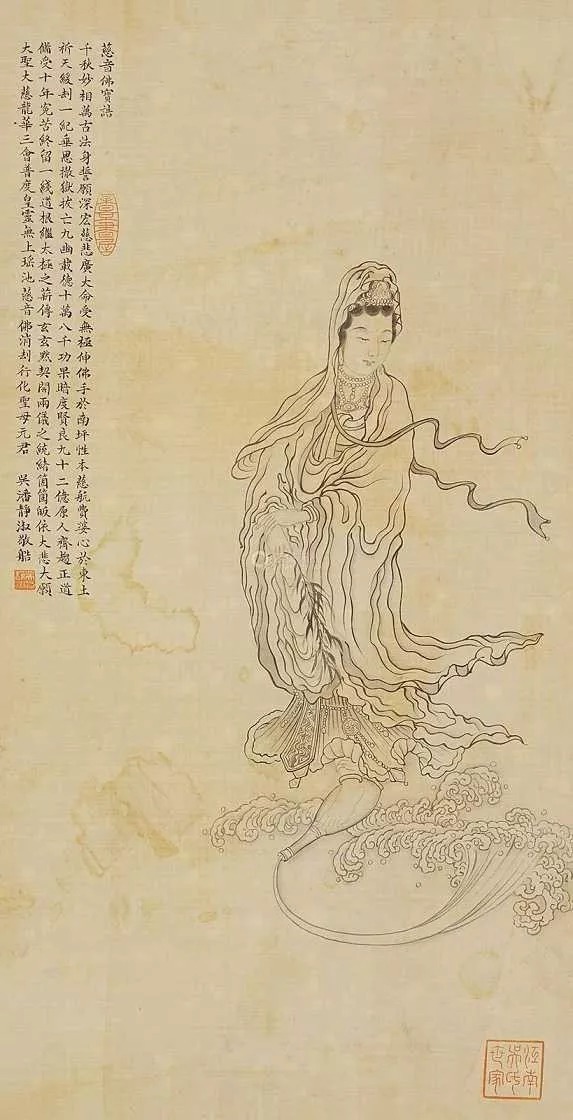 慈音佛寶誥
千秋妙相萬古法身誓願深宏慈悲廣大命受無極伸佛手於南坪性本慈航費婆心於東土
祈天緩刦一紀垂思撤獄拔亡九幽載德十萬八千功果暗度賢良九十二億原人齊趨正道
備受十年寃苦終留一綫道根繼太極之薪傳玄玄默契開兩儀之統緒箇箇皈依大悲大願
大聖大慈龍華三會普度皇靈無上瑶池慈音佛消刦行化聖母元君 吳潘靜淑敬繪
江南吳氏世家